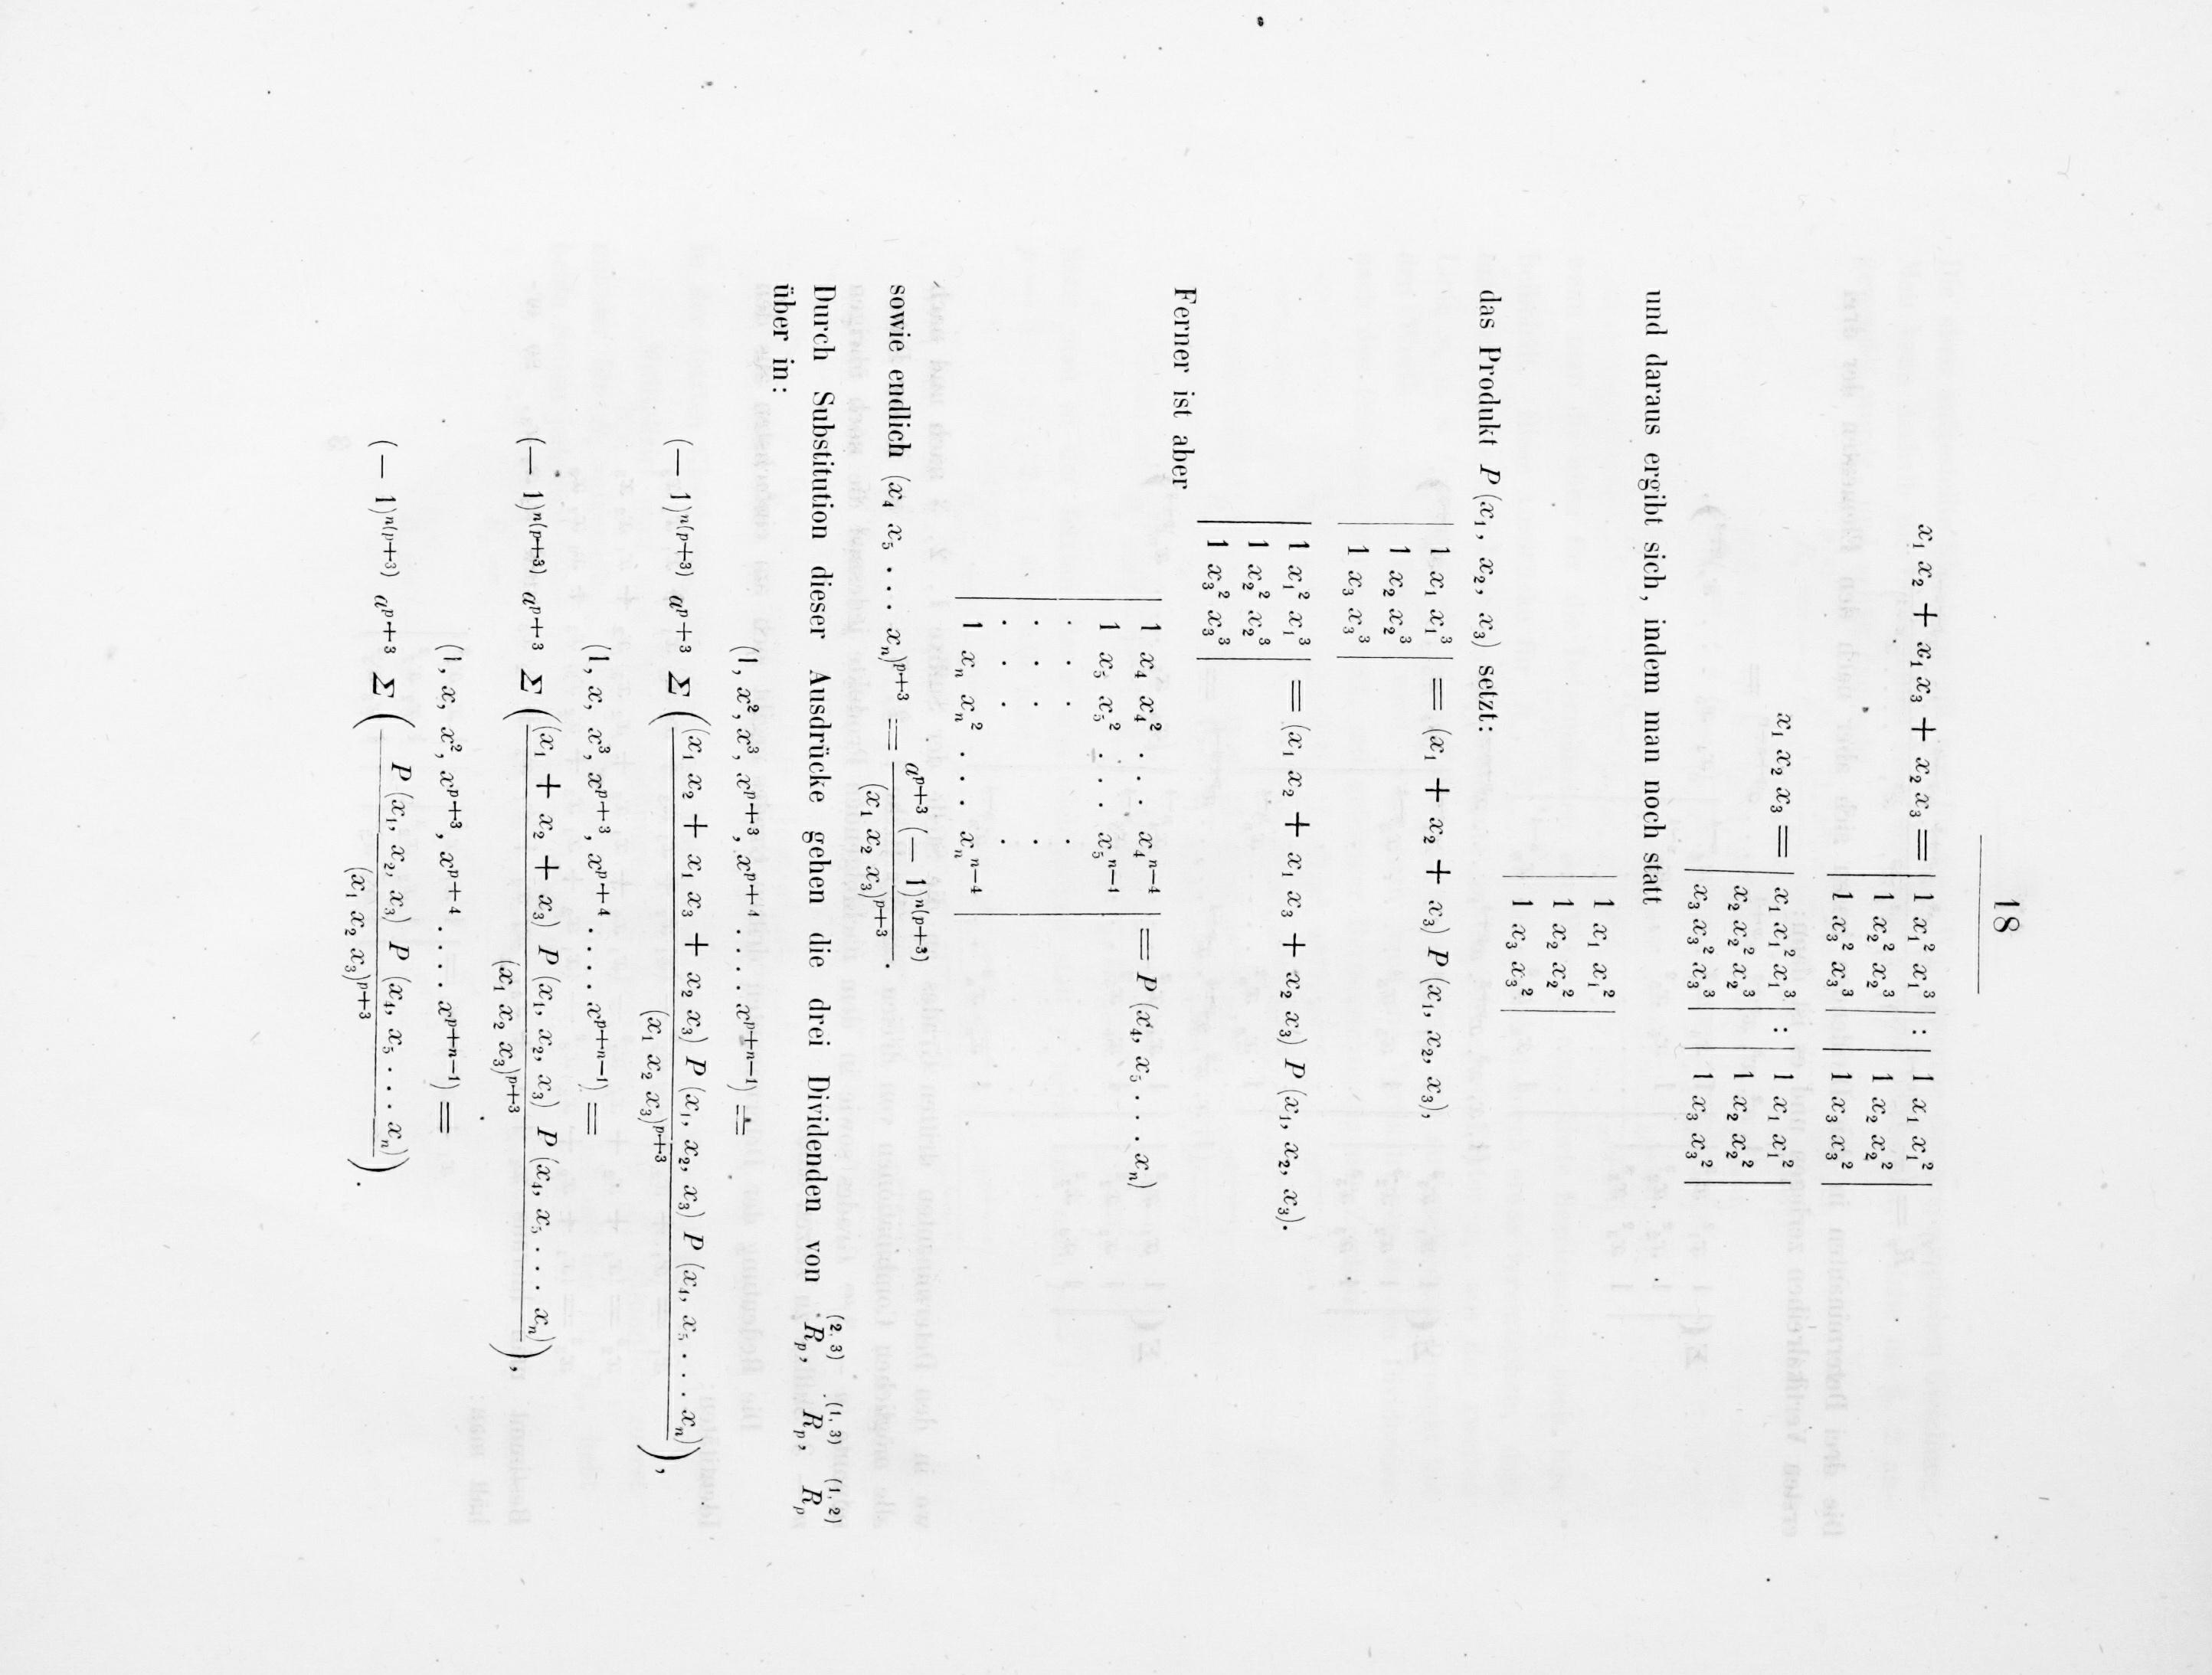 18
x₁ x₂ + x₁ x₃ + x₂ x₃ = | 1 x₁² x₁³ | : | 1 x₁ x₁² |
| 1 x₂² x₂³ | | 1 x₂ x₂² |
| 1 x₃² x₃³ | | 1 x₃ x₃² |
x₁ x₂ x₃ = | x₁ x₁² x₁³ | : | 1 x₁ x₁² |
| x₂ x₂² x₂³ | | 1 x₂ x₂² |
| x₃ x₃² x₃³ | | 1 x₃ x₃² |
und daraus ergibt sich, indem man noch statt
| 1 x₁ x₁² |
| 1 x₂ x₂² |
| 1 x₃ x₃² |
das Produkt P (x₁, x₂, x₃) setzt:
| 1 x₁ x₁³ | = (x₁ + x₂ + x₃) P (x₁, x₂, x₃),
| 1 x₂ x₂³ |
| 1 x₃ x₃³ |
| 1 x₁² x₁³ | = (x₁ x₂ + x₁ x₃ + x₂ x₃) P (x₁, x₂, x₃).
| 1 x₂² x₂³ |
| 1 x₃² x₃³ |
Ferner ist aber
| 1 x₄ x₄² . . . x₄ⁿ⁻⁴ | = P (x₄, x₅ . . . xₙ)
| 1 x₅ x₅² . . . x₅ⁿ⁻⁴ |
| . . . . |
| . . . . |
| . . . . |
| 1 xₙ xₙ² . . . xₙⁿ⁻⁴ |
sowie endlich (x₄ x₅ . . . xₙ)ᵖ⁺³ = aᵖ⁺³ (— 1)ⁿ⁽ᵖ⁺³⁾ / (x₁ x₂ x₃)ᵖ⁺³ .
Durch Substitution dieser Ausdrücke gehen die drei Dividenden von Rₚ⁽²,³⁾, Rₚ⁽¹,³⁾, Rₚ⁽¹,²⁾
über in:
(1, x², x³, xᵖ⁺³, xᵖ⁺⁴ . . . . xᵖ⁺ⁿ⁻¹) =
(— 1)ⁿ⁽ᵖ⁺³⁾ aᵖ⁺³ Σ ( (x₁ x₂ + x₁ x₃ + x₂ x₃) P (x₁, x₂, x₃) P (x₄, x₅ . . . xₙ) / (x₁ x₂ x₃)ᵖ⁺³ ),
(1, x, x³, xᵖ⁺³, xᵖ⁺⁴ . . . . xᵖ⁺ⁿ⁻¹) =
(— 1)ⁿ⁽ᵖ⁺³⁾ aᵖ⁺³ Σ ( (x₁ + x₂ + x₃) P (x₁, x₂, x₃) P (x₄, x₅ . . . xₙ) / (x₁ x₂ x₃)ᵖ⁺³ ),
(1, x, x², xᵖ⁺³, xᵖ⁺⁴ . . . . xᵖ⁺ⁿ⁻¹) =
(— 1)ⁿ⁽ᵖ⁺³⁾ aᵖ⁺³ Σ ( P (x₁, x₂, x₃) P (x₄, x₅ . . . xₙ) / (x₁ x₂ x₃)ᵖ⁺³ ).